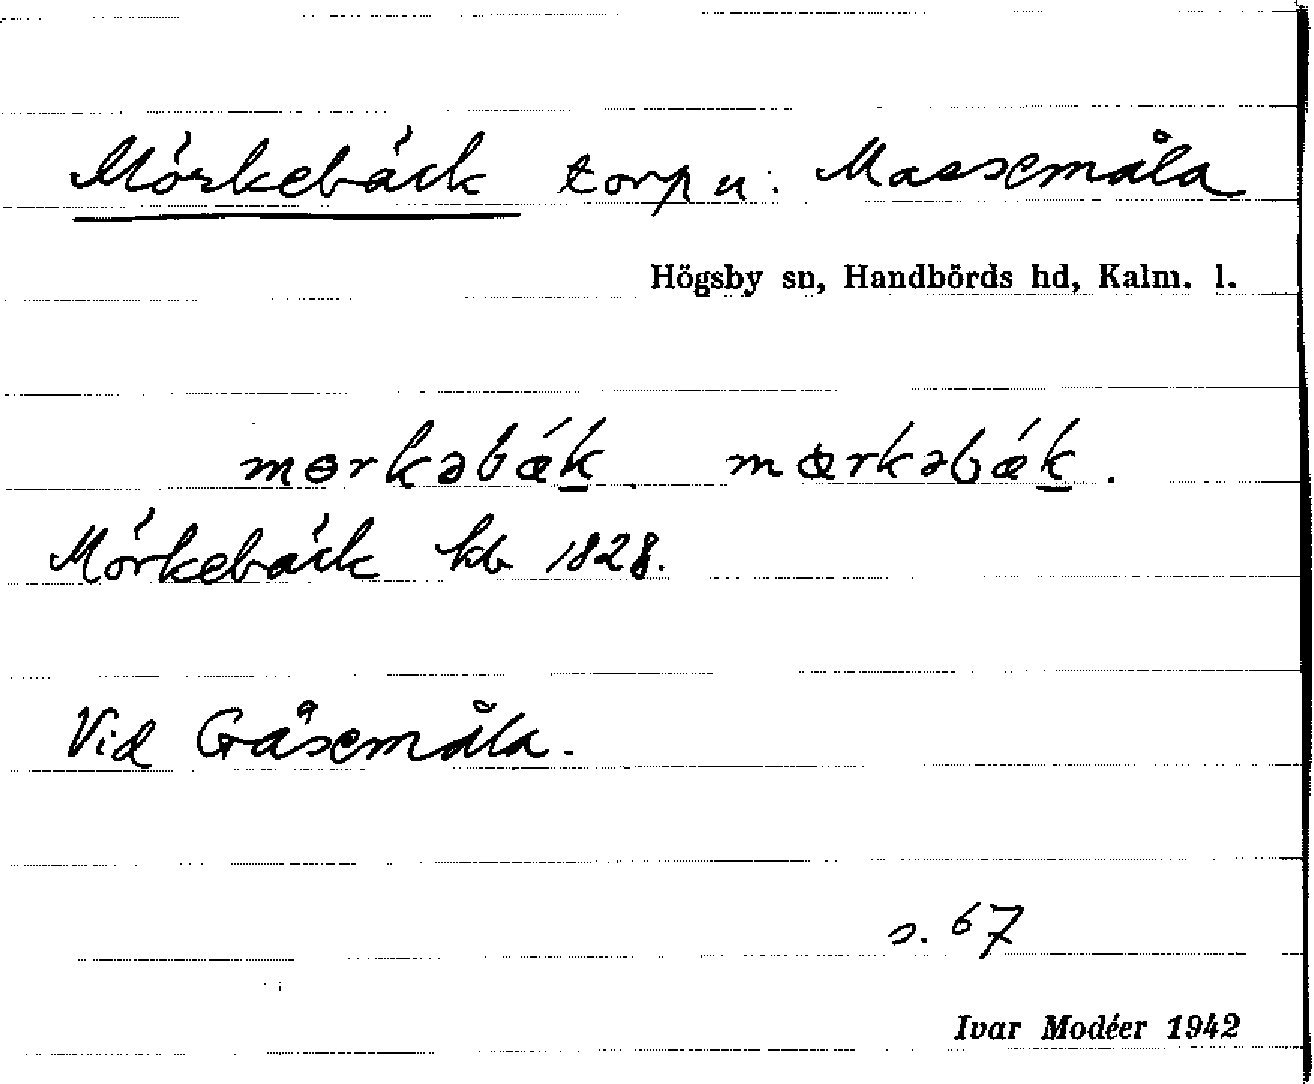 Mörkebäck torp u. Massemåla
Högsby sn, Handbörds hd, Kalm. l.
mɵrkəbǽk. mœrkəbǽk.
Mörkebäck kb 1828.
Vid Gåsemåla.
s. 67
Ivar Modéer 1942